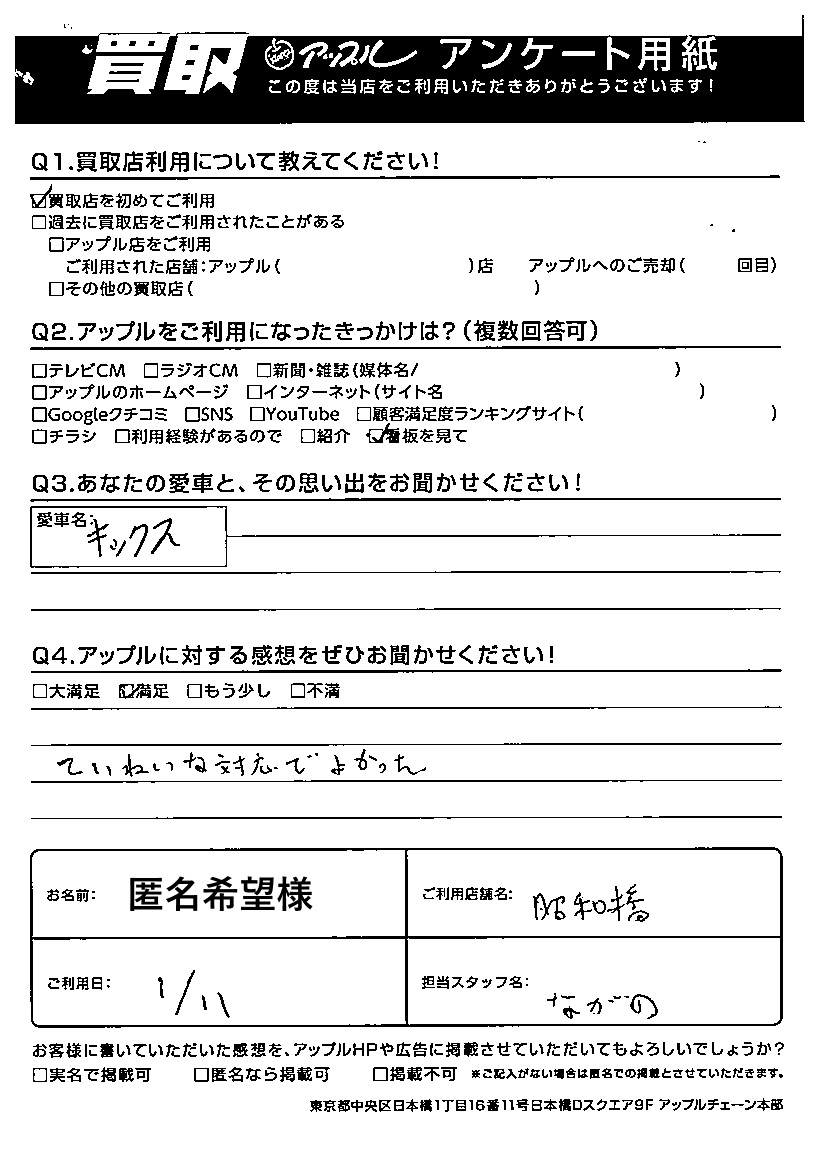 買取 アップル アンケート用紙
この度は当店をご利用いただきありがとうございます!
Q1.買取店利用について教えてください!
☑買取店を初めてご利用
□過去に買取店をご利用されたことがある
□アップル店をご利用
ご利用された店舗:アップル( )店 アップルへのご売却( 回目)
□その他の買取店( )
Q2.アップルをご利用になったきっかけは?(複数回答可)
□テレビCM □ラジオCM □新聞・雑誌(媒体名/ )
□アップルのホームページ □インターネット(サイト名 )
□Googleクチコミ □SNS □YouTube □顧客満足度ランキングサイト( )
□チラシ □利用経験があるので □紹介 ☑看板を見て
Q3.あなたの愛車と、その思い出をお聞かせください!
愛車名:キックス
Q4.アップルに対する感想をぜひお聞かせください!
□大満足 ☑満足 □もう少し □不満
ていねいな対応でよかった
お名前: 匿名希望様 ご利用店舗名: 昭和橋
ご利用日: 1/11 担当スタッフ名: ながの
お客様に書いていただいた感想を、アップルHPや広告に掲載させていただいてもよろしいでしょうか?
□実名で掲載可 □匿名なら掲載可 □掲載不可 ※ご記入がない場合は匿名での掲載とさせていただきます。
東京都中央区日本橋1丁目16番11号日本橋Dスクエア9F アップルチェーン本部